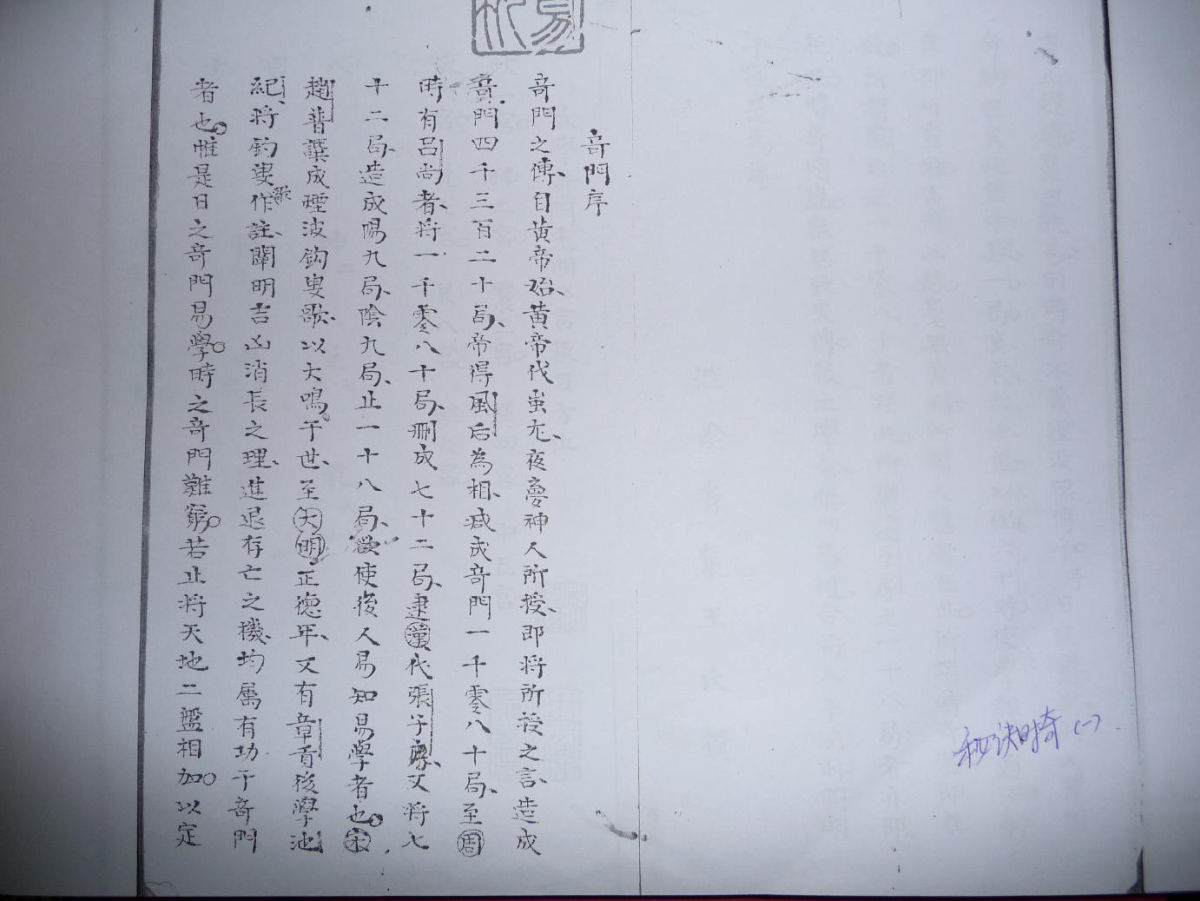 奇門序
奇門之傳自黃帝始黃帝代蚩尤夜夢神人所授即將所授之言造成
奇門四千三百二十局帝得風后為相減成奇門一千零八十局至周
時有呂尚者將一千零八十局刪成七十二局逮漢代張子房又將七
十二局造成陽九局陰九局止一十八局欲使後人易知易學者也宋
趙普譔成煙波鈎叟歌以大鳴于世至大明正德年又有章甫後學池
紀將鈎叟歌作註闡明吉凶消長之理進退存亡之機均屬有功于奇門
者也惟是日之奇門易學時之奇門難窮若止將天地二盤相加以定
秘訣時奇(一)